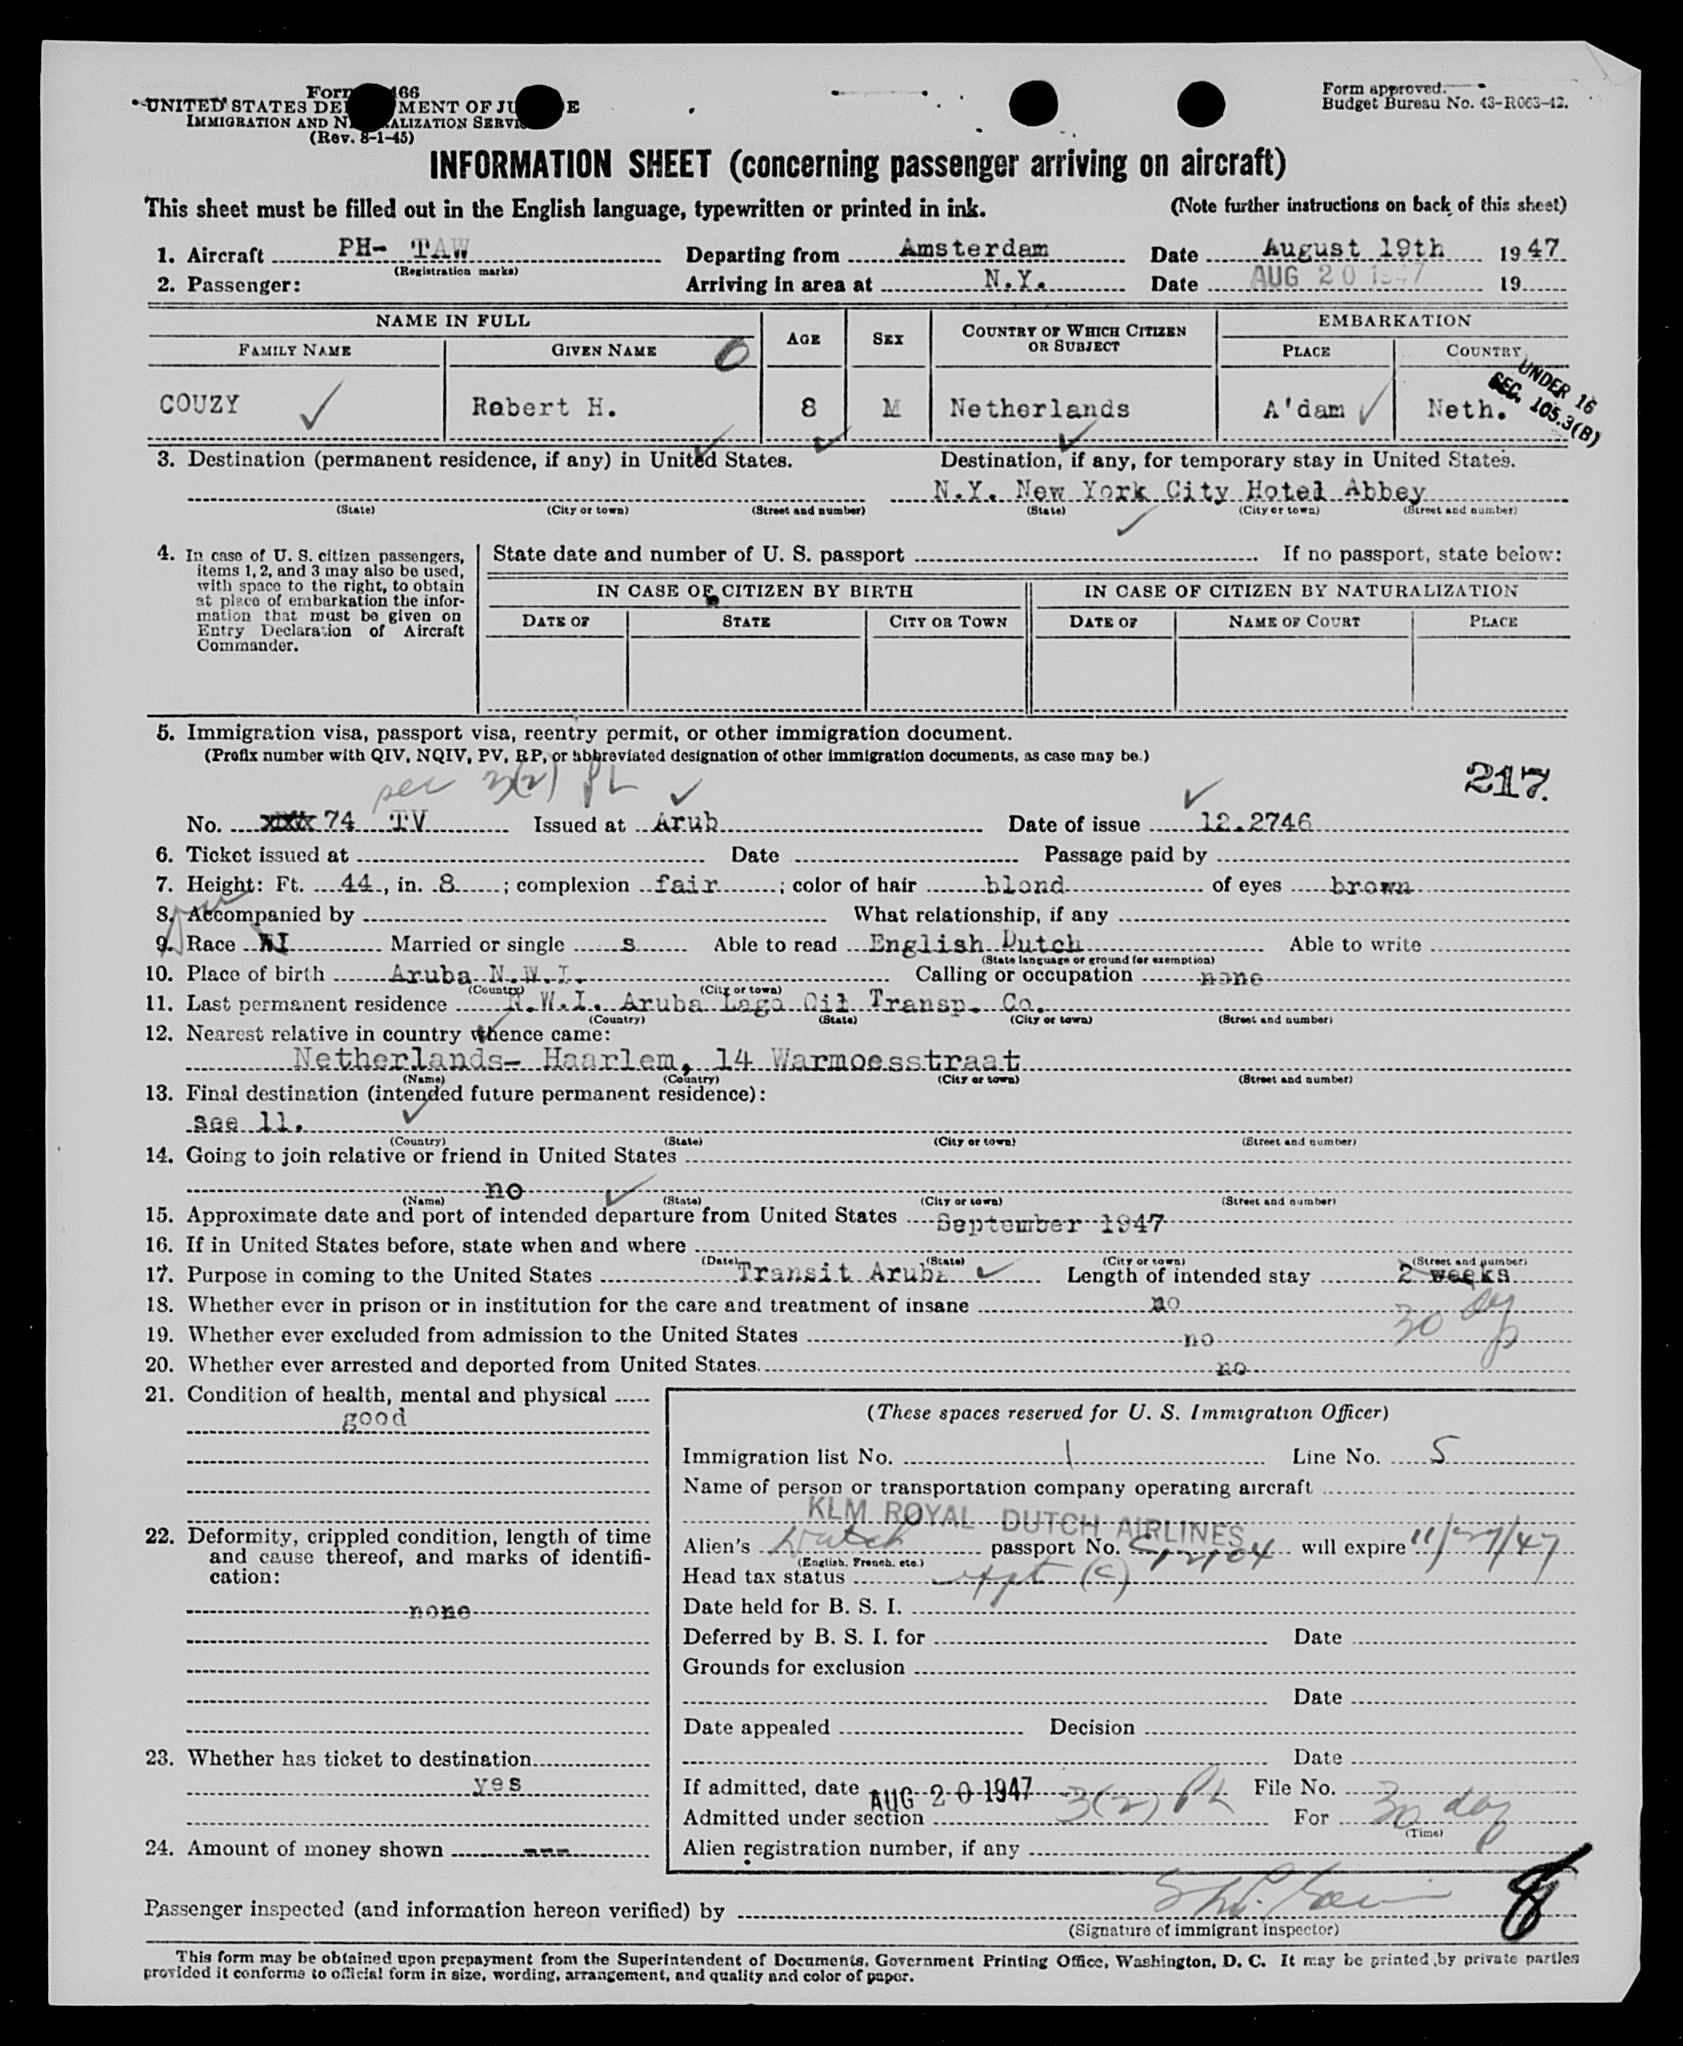 Form 466
Form approved.
UNITED STATES DEPARTMENT OF JUSTICE
Budget Bureau No. 43-R063-42.
IMMIGRATION AND NATURALIZATION SERVICE
(Rev. 8-1-45)
INFORMATION SHEET (concerning passenger arriving on aircraft)
This sheet must be filled out in the English language, typewritten or printed in ink. (Note further instructions on back of this sheet)
1. Aircraft PH- TAW Departing from Amsterdam Date August 19th 1947
(Registration marks)
2. Passenger: Arriving in area at N.Y. Date AUG 20 1947 19
NAME IN FULL AGE SEX COUNTRY OF WHICH CITIZEN OR SUBJECT EMBARKATION
FAMILY NAME GIVEN NAME PLACE COUNTRY
UNDER 16
SEC. 105.3(B)
COUZY Robert H. 8 M Netherlands A'dam Neth.
3. Destination (permanent residence, if any) in United States. Destination, if any, for temporary stay in United States.
N.Y. New York City Hotel Abbey
(State) (City or town) (Street and number) (State) (City or town) (Street and number)
4. In case of U. S. citizen passengers, items 1, 2, and 3 may also be used, with space to the right, to obtain at place of embarkation the information that must be given on Entry Declaration of Aircraft Commander.
State date and number of U. S. passport If no passport, state below:
IN CASE OF CITIZEN BY BIRTH IN CASE OF CITIZEN BY NATURALIZATION
DATE OF STATE CITY OR TOWN DATE OF NAME OF COURT PLACE
5. Immigration visa, passport visa, reentry permit, or other immigration document.
(Prefix number with QIV, NQIV, PV, RP, or abbreviated designation of other immigration documents, as case may be.)
sec 3(2) PL
217.
No. xxxx 74 TV Issued at Arub Date of issue 12.2746
6. Ticket issued at Date Passage paid by
7. Height: Ft. 44, in. 8; complexion fair; color of hair blond of eyes brown
8. Accompanied by What relationship, if any
9. Race WI Married or single s Able to read English Dutch Able to write
(State language or ground for exemption)
10. Place of birth Aruba N.W.I. Calling or occupation none
(Country) (City or town)
11. Last permanent residence N.W.I. Aruba Lago Oil Transp. Co.
(Country) (State) (City or town) (Street and number)
12. Nearest relative in country whence came:
Netherlands- Haarlem, 14 Warmoesstraat
(Name) (Country) (City or town) (Street and number)
13. Final destination (intended future permanent residence):
see 11.
(Country) (State) (City or town) (Street and number)
14. Going to join relative or friend in United States
no
(Name) (State) (City or town) (Street and number)
15. Approximate date and port of intended departure from United States September 1947
16. If in United States before, state when and where
(Date) (State) (City or town) (Street and number)
17. Purpose in coming to the United States Transit Aruba Length of intended stay 2 weeks
18. Whether ever in prison or in institution for the care and treatment of insane no
30 day
19. Whether ever excluded from admission to the United States no
20. Whether ever arrested and deported from United States. no
21. Condition of health, mental and physical
good
22. Deformity, crippled condition, length of time and cause thereof, and marks of identification:
none
23. Whether has ticket to destination
yes
24. Amount of money shown ---
(These spaces reserved for U. S. Immigration Officer)
Immigration list No. 1 Line No. 5
Name of person or transportation company operating aircraft
KLM ROYAL DUTCH AIRLINES
Alien's Dutch passport No. will expire 11/27/47
(English, French, etc.)
Head tax status expt (c)
Date held for B. S. I.
Deferred by B. S. I. for Date
Grounds for exclusion
Date
Date appealed Decision
Date
If admitted, date AUG 20 1947 File No.
Admitted under section 3(2) PL For 30 day
(Time)
Alien registration number, if any
Passenger inspected (and information hereon verified) by
8
(Signature of immigrant inspector)
This form may be obtained upon prepayment from the Superintendent of Documents, Government Printing Office, Washington, D. C. It may be printed by private parties
provided it conforms to official form in size, wording, arrangement, and quality and color of paper.